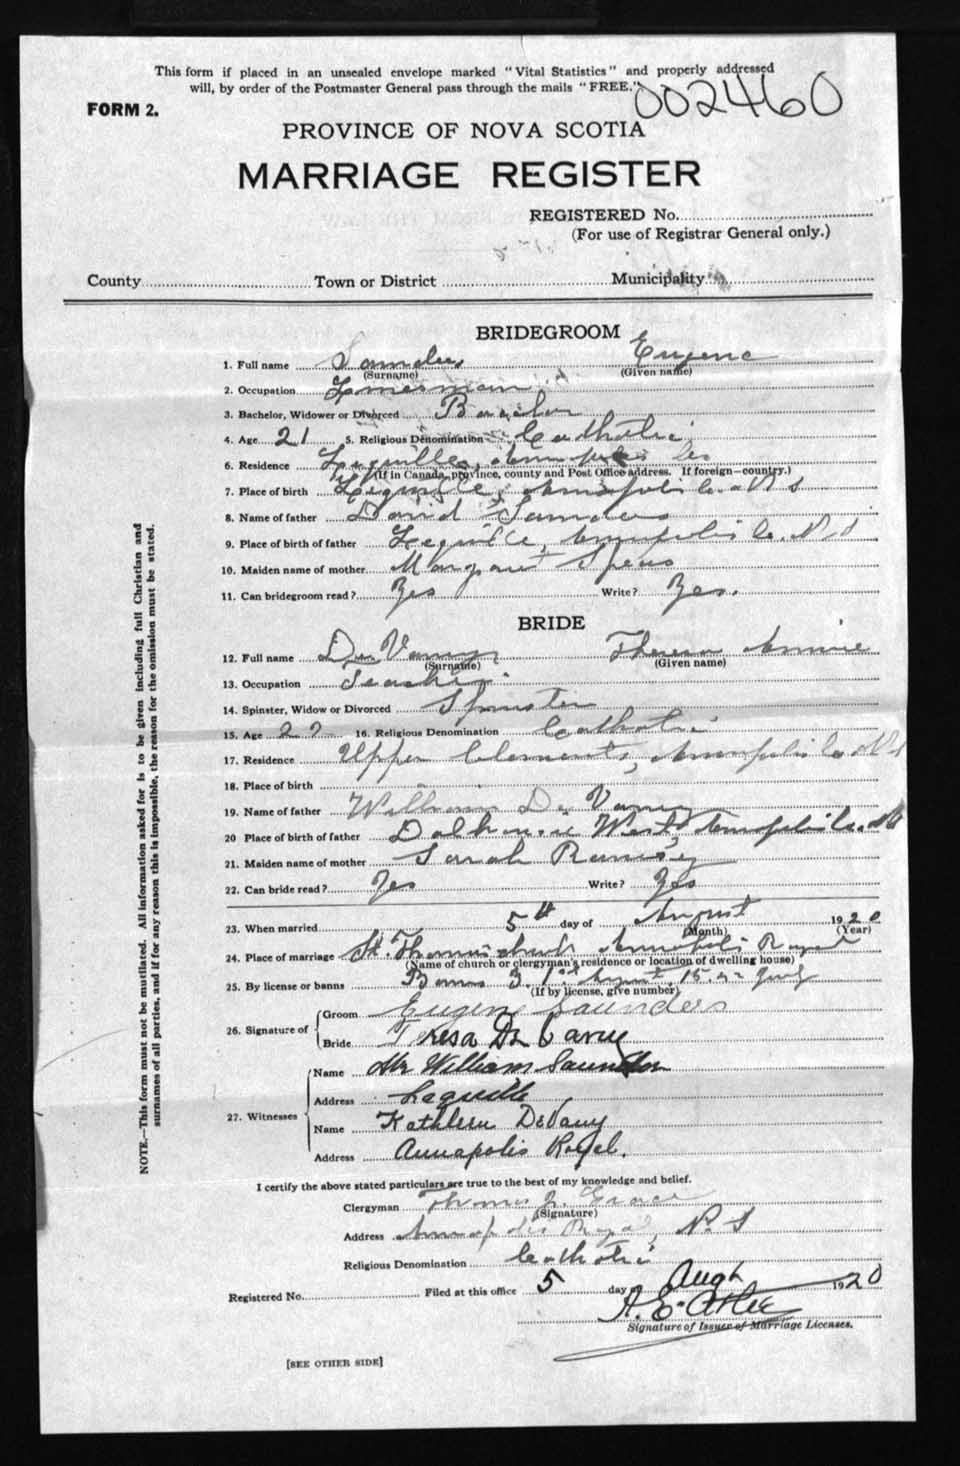 This form if placed in an unsealed envelope marked "Vital Statistics" and properly addressed
will, by order of the Postmaster General pass through the mails "FREE."
002460
FORM 2.
PROVINCE OF NOVA SCOTIA
MARRIAGE REGISTER
REGISTERED No.
(For use of Registrar General only.)
County Town or District Municipality
BRIDEGROOM
1. Full name Saunders Eugene
(Surname) (Given name)
2. Occupation Linesman
3. Bachelor, Widower or Divorced Bachelor
4. Age 21 5. Religious Denomination Catholic
6. Residence Lequille, Annapolis Co
(If in Canada, province, county and Post Office address. If foreign—country.)
7. Place of birth Lequille, Annapolis Co. N S
8. Name of father David Saunders
9. Place of birth of father Lequille, Annapolis Co. N S
10. Maiden name of mother Margaret Spears
11. Can bridegroom read? Yes Write? Yes.
BRIDE
12. Full name De Vany Theresa Annie
(Surname) (Given name)
13. Occupation Teacher
14. Spinster, Widow or Divorced Spinster
15. Age 22 16. Religious Denomination Catholic
17. Residence Upper Clements, Annapolis Co N S
18. Place of birth
19. Name of father William De Vany
20 Place of birth of father Dalhousie West, Annapolis Co. NS
21. Maiden name of mother Sarah Ramsey
22. Can bride read? Yes Write? Yes
23. When married 5th day of August 1920
(Month) (Year)
24. Place of marriage St. Thomas Church Annapolis Royal
(Name of church or clergyman's residence or location of dwelling house)
25. By license or banns Banns 3. 1st August, 15
(If by license, give number)
26. Signature of Groom Eugene Saunders
Bride Teresa De Vany
27. Witnesses Name William Saunders
Address Lequille
Name Kathleen DeVany
Address Annapolis Royal.
I certify the above stated particulars are true to the best of my knowledge and belief.
Clergyman Thomas J. Grace
(Signature)
Address Annapolis Royal, N. S
Religious Denomination Catholic
Registered No. Filed at this office 5 day of Augt 1920
A. E. Atlee
Signature of Issuer of Marriage Licenses.
[SEE OTHER SIDE]
NOTE.—This form must not be mutilated. All information asked for is to be given including full Christian and
surnames of all parties, and if for any reason this is impossible, the reason for the omission must be stated.